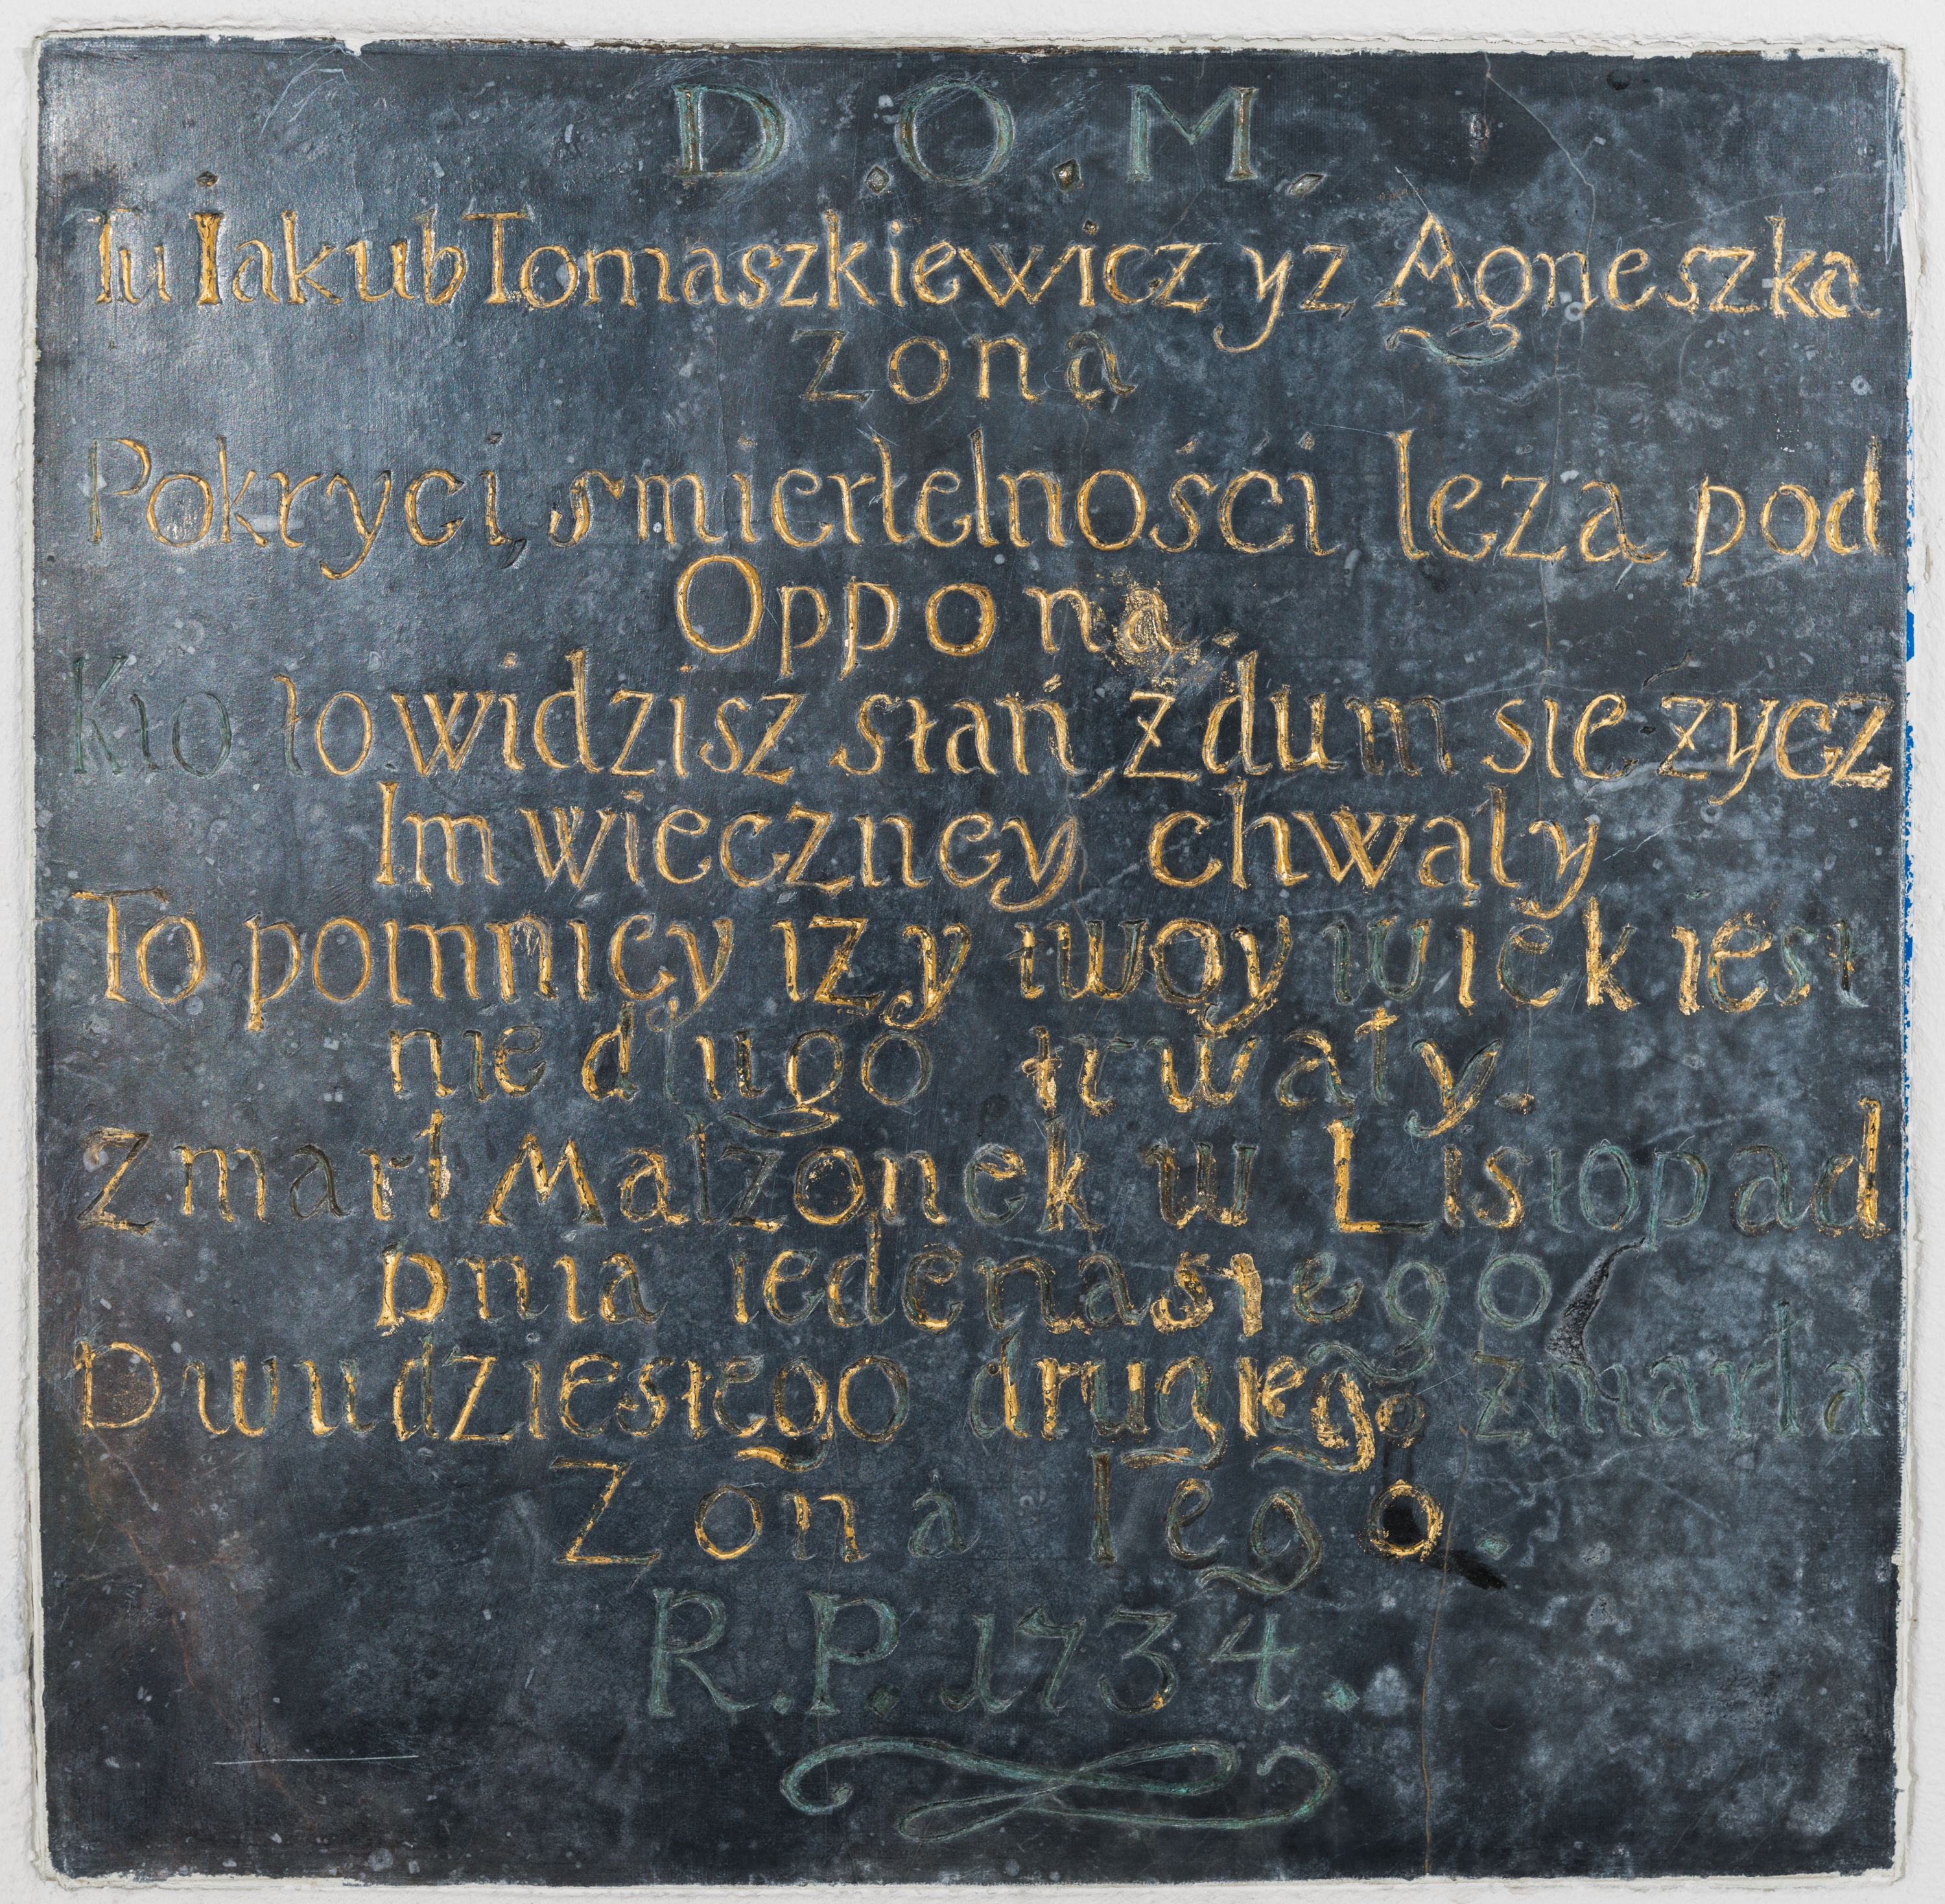 D.O.M.
Tu Iakub Tomaszkiewicz yz Agneszka
Zona
Pokryci, smiertelności leza pod
Oppona.
Kto to widzisz stań, zdum sie zycz
Im wieczney chwały
To pomnicy iz y twoy wiek iest
nie długo trwały.
Zmarł Malzonek w Listopad
Dnia iedenastego
Dwudziestego drugiego zmarła
Zona Tego.
R.P. 1734.